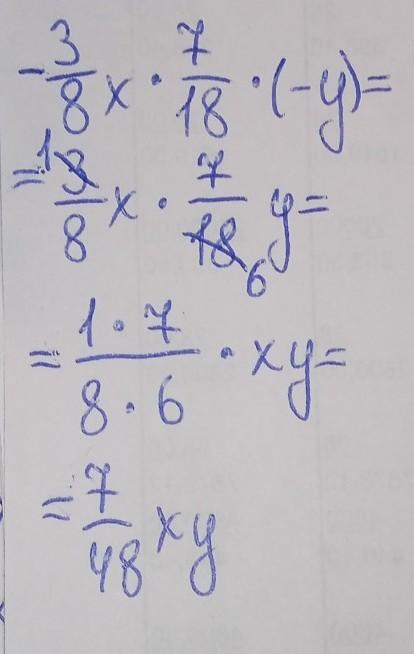 -3/8 x · 7/18 · (-y)=
= 1 3/8 x · 7/18 6 y=
= 1·7/8·6 · xy=
= 7/48 xy